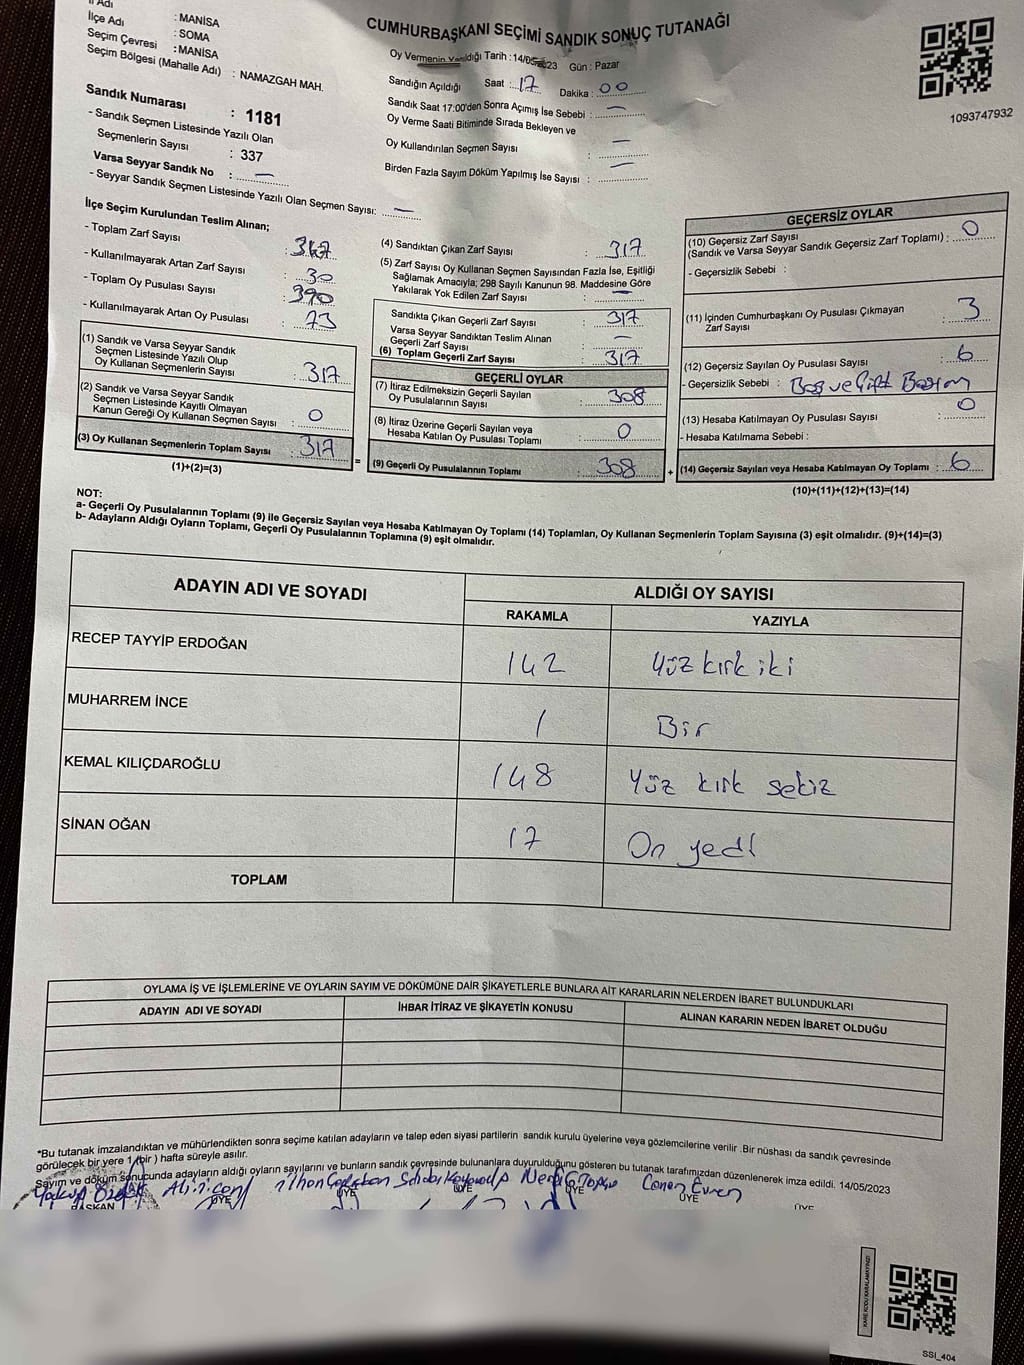 İl Adı : MANİSA
İlçe Adı : SOMA
Seçim Çevresi : MANİSA
Seçim Bölgesi (Mahalle Adı) : NAMAZGAH MAH.
CUMHURBAŞKANI SEÇİMİ SANDIK SONUÇ TUTANAĞI
Oy Vermenin Yapıldığı Tarih : 14/05/2023 Gün : Pazar
Sandığın Açıldığı Saat : 17 Dakika : 00
Sandık Saat 17:00'den Sonra Açımış İse Sebebi : —
Oy Verme Saati Bitiminde Sırada Bekleyen ve
Oy Kullandırılan Seçmen Sayısı : —
Birden Fazla Sayım Döküm Yapılmış İse Sayısı : —
1093747932
Sandık Numarası : 1181
- Sandık Seçmen Listesinde Yazılı Olan
Seçmenlerin Sayısı : 337
Varsa Seyyar Sandık No : —
- Seyyar Sandık Seçmen Listesinde Yazılı Olan Seçmen Sayısı: —
İlçe Seçim Kurulundan Teslim Alınan;
- Toplam Zarf Sayısı : 347
- Kullanılmayarak Artan Zarf Sayısı : 30
- Toplam Oy Pusulası Sayısı : 390
- Kullanılmayarak Artan Oy Pusulası : 73
(1) Sandık ve Varsa Seyyar Sandık
Seçmen Listesinde Yazılı Olup
Oy Kullanan Seçmenlerin Sayısı : 317
(2) Sandık ve Varsa Seyyar Sandık
Seçmen Listesinde Kayıtlı Olmayan
Kanun Gereği Oy Kullanan Seçmen Sayısı : 0
(3) Oy Kullanan Seçmenlerin Toplam Sayısı : 317
(1)+(2)=(3)
=
(4) Sandıktan Çıkan Zarf Sayısı : 317
(5) Zarf Sayısı Oy Kullanan Seçmen Sayısından Fazla İse, Eşitliği
Sağlamak Amacıyla; 298 Sayılı Kanunun 98. Maddesine Göre
Yakılarak Yok Edilen Zarf Sayısı : —
Sandıkta Çıkan Geçerli Zarf Sayısı : 317
Varsa Seyyar Sandıktan Teslim Alınan
Geçerli Zarf Sayısı : —
(6) Toplam Geçerli Zarf Sayısı : 317
GEÇERLİ OYLAR
(7) İtiraz Edilmeksizin Geçerli Sayılan
Oy Pusulalarının Sayısı : 308
(8) İtiraz Üzerine Geçerli Sayılan veya
Hesaba Katılan Oy Pusulası Toplamı : 0
(9) Geçerli Oy Pusulalarının Toplamı : 308
+
GEÇERSİZ OYLAR
(10) Geçersiz Zarf Sayısı
(Sandık ve Varsa Seyyar Sandık Geçersiz Zarf Toplamı) : 0
- Geçersizlik Sebebi :
(11) İçinden Cumhurbaşkanı Oy Pusulası Çıkmayan
Zarf Sayısı : 3
(12) Geçersiz Sayılan Oy Pusulası Sayısı : 6
- Geçersizlik Sebebi : Boş ve Çift Basım
(13) Hesaba Katılmayan Oy Pusulası Sayısı : 0
- Hesaba Katılmama Sebebi :
(14) Geçersiz Sayılan veya Hesaba Katılmayan Oy Toplamı : 6
(10)+(11)+(12)+(13)=(14)
NOT:
a- Geçerli Oy Pusulalarının Toplamı (9) ile Geçersiz Sayılan veya Hesaba Katılmayan Oy Toplamı (14) Toplamları, Oy Kullanan Seçmenlerin Toplam Sayısına (3) eşit olmalıdır. (9)+(14)=(3)
b- Adayların Aldığı Oyların Toplamı, Geçerli Oy Pusulalarının Toplamına (9) eşit olmalıdır.
ADAYIN ADI VE SOYADI
ALDIĞI OY SAYISI
RAKAMLA YAZIYLA
RECEP TAYYİP ERDOĞAN 142 Yüz kırk iki
MUHARREM İNCE 1 Bir
KEMAL KILIÇDAROĞLU 148 Yüz kırk sekiz
SİNAN OĞAN 17 On yedi
TOPLAM
OYLAMA İŞ VE İŞLEMLERİNE VE OYLARIN SAYIM VE DÖKÜMÜNE DAİR ŞİKAYETLERLE BUNLARA AİT KARARLARIN NELERDEN İBARET BULUNDUKLARI
ADAYIN ADI VE SOYADI İHBAR İTİRAZ VE ŞİKAYETİN KONUSU ALINAN KARARIN NEDEN İBARET OLDUĞU
*Bu tutanak imzalandıktan ve mühürlendikten sonra seçime katılan adayların ve talep eden siyasi partilerin sandık kurulu üyelerine veya gözlemcilerine verilir. Bir nüshası da sandık çevresinde
görülecek bir yere 1 (bir ) hafta süreyle asılır.
Sayım ve döküm sonucunda adayların aldığı oyların sayılarını ve bunların sandık çevresinde bulunanlara duyurulduğunu gösteren bu tutanak tarafımızdan düzenlenerek imza edildi. 14/05/2023
Caner Evren
BAŞKAN ÜYE ÜYE ÜYE ÜYE ÜYE ÜYE
KARE KODU KARALAMAYINIZ!
SSI_404